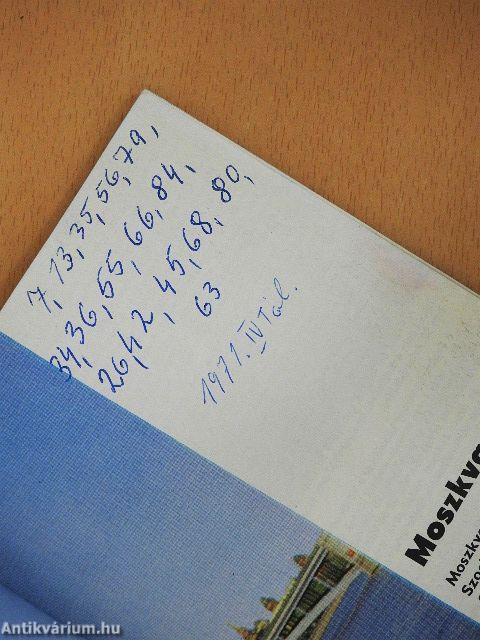 7, 13, 35, 56, 79,
34, 36, 55, 66, 84,
26, 42, 45, 68, 80,
63
1971. IV
Moszkva
Moszkv
Antikvárium.hu